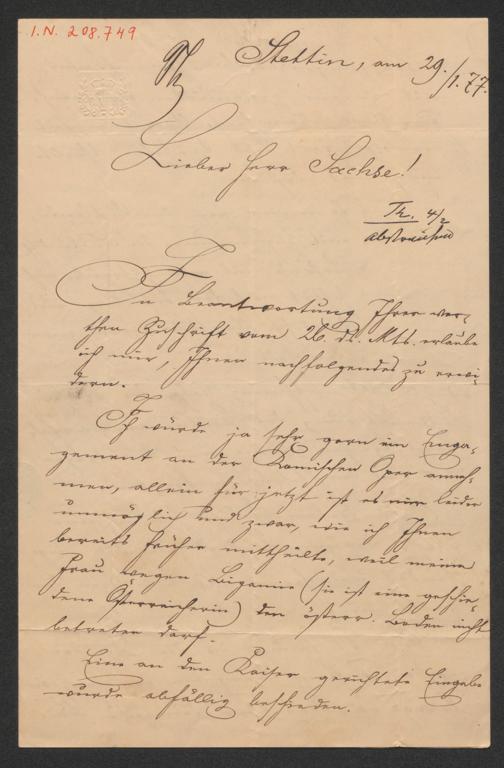 I.N. 208.749
Stettin, am 29./1. 77.
Lieber Herr Sachse!
Th. 4/2
In Beantwortung Ihrer wer-
then Zuschrift vom 26. ds. Mts. erlaube
ich mir, Ihnen nachfolgendes zu erwi-
dern.
Ich würde ja sehr gern ein Enga-
gement an der Komischen Oper anneh-
men, allein für jetzt ist es nur leider
unmöglich und zwar, wie ich Ihnen
bereits früher mittheilte, weil meine
Frau wegen Bigamie (sie ist eine geschie-
dene Österreicherin) den österr. Boden nicht
betreten darf.
Eine an den Kaiser gerichtete Eingabe
wurde abfällig beschieden.